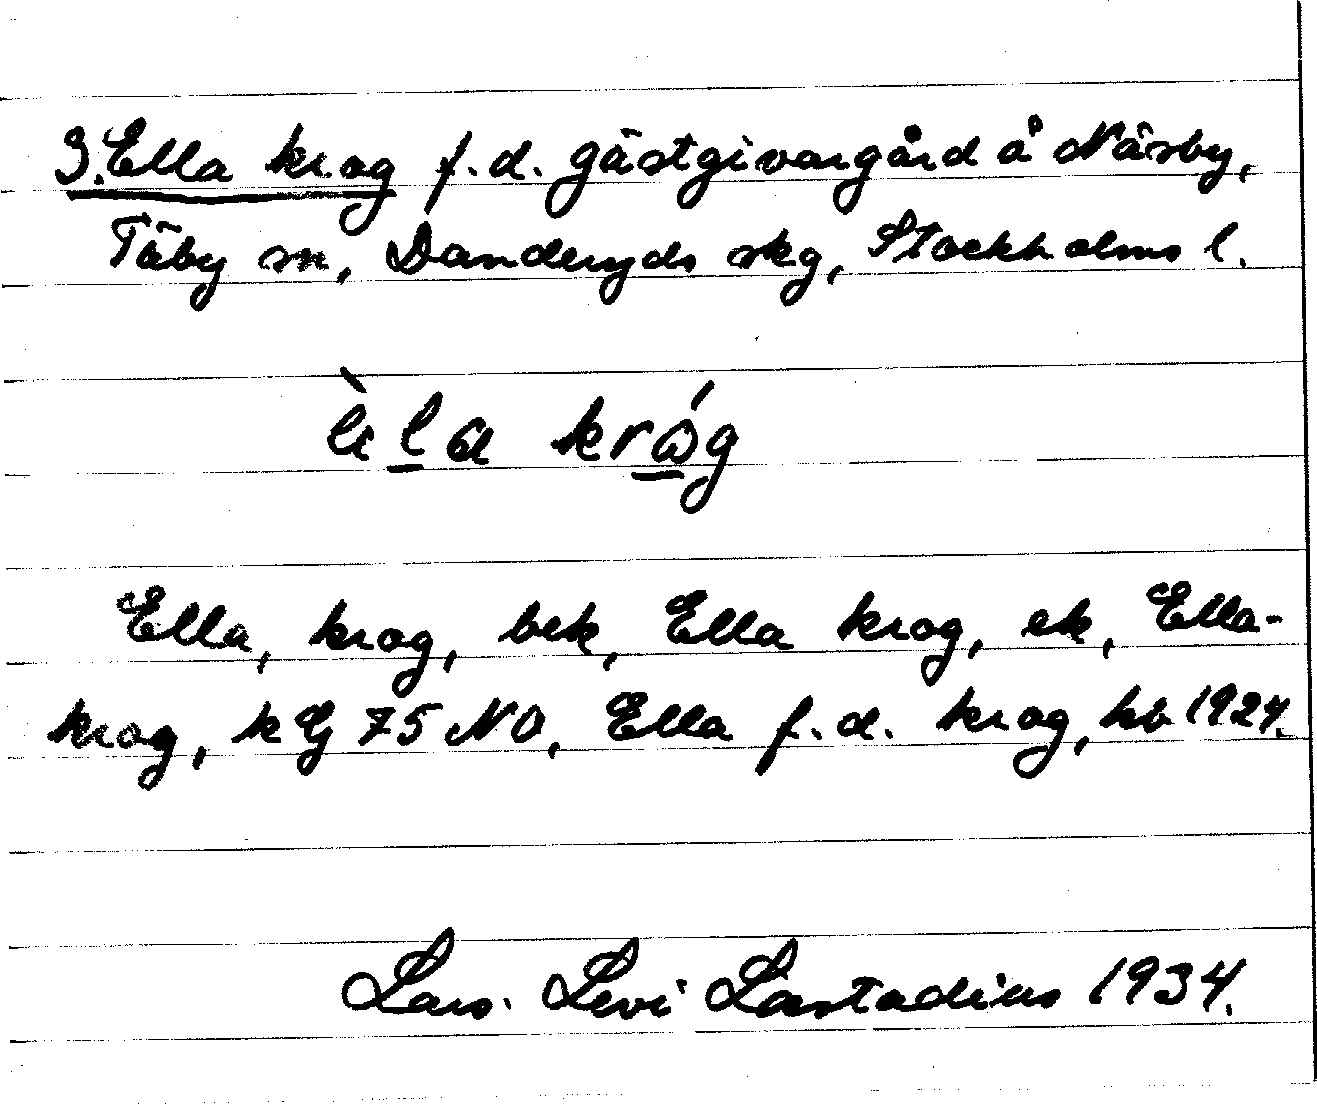 3. Ella krog f.d. gästgivargård å Näsby,
Täby sn, Danderyds skg, Stockholms l.
èla króg
Ella, krog, bek, Ella krog, ek, Ella-
krog, kG 75 NO, Ella f.d. krog, kb 1924.
Lars Levi Læstadius 1934.